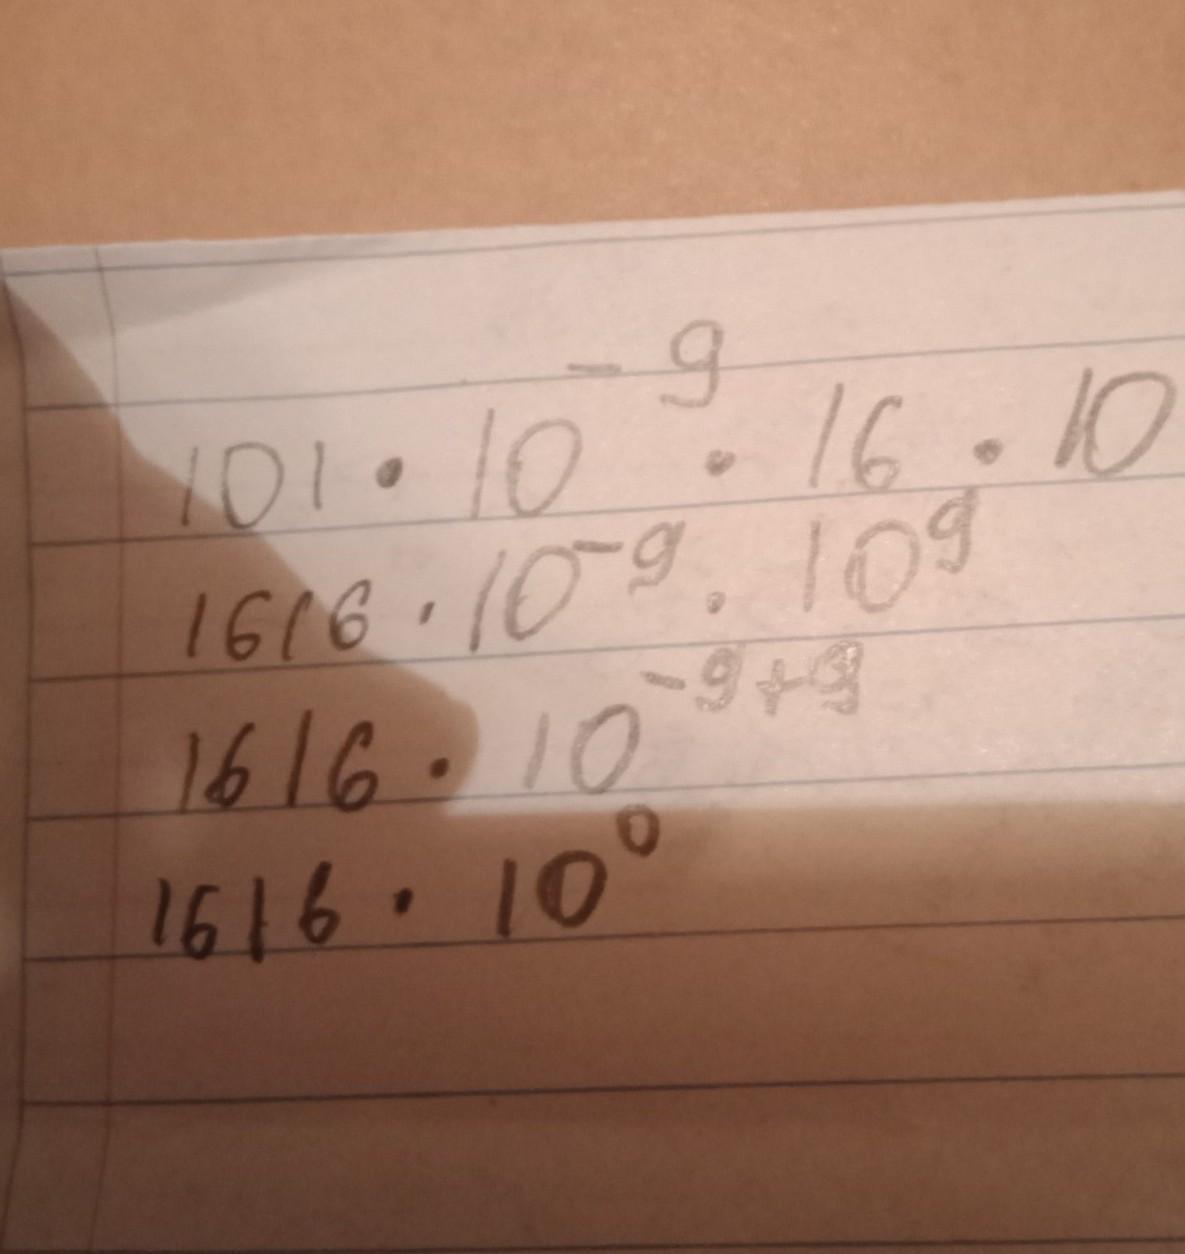 101 · 10⁻⁹ · 16 · 10
1616 · 10⁻⁹ · 10⁹
1616 · 10⁻⁹⁺⁹
1616 · 10⁰